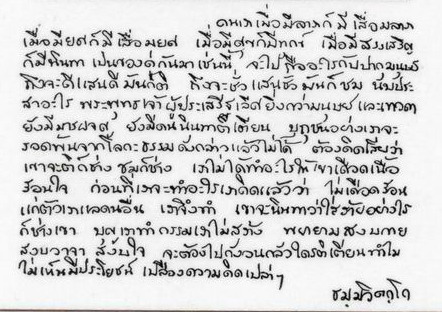 คนเราเมื่อมีลาภก็มีเสื่อมลาภ
เมื่อมียศก็มีเสื่อมยศ เมื่อมีสุขก็มีทุกข์ เมื่อมีสรรเสริญ
ก็มีนินทา เป็นของคู่กันมาเช่นนี้ จะไปถืออะไรกับปากมนุษย์
ถึงจะดีแสนดีมันก็ติ ถึงจะชั่วแสนชั่วมันก็ชม นับประ
สาอะไร พระพุทธเจ้าผู้ประเสริฐเลิศยิ่งกว่ามนุษย์และเทวดา
ยังมีมารผจญ ยังมีคนนินทาติเตียน ปุถุชนอย่างเราจะ
รอดพ้นจากโลกะธรรมดังกล่าวแล้วไม่ได้ ต้องคิดเสียว่า
เขาจะติก็ช่าง ชมก็ช่าง เราไม่ได้ทำอะไรให้เขาเดือดเนื้อ
ร้อนใจ ก่อนที่เราจะทำอะไรเราคิดแล้วว่า ไม่เดือดร้อน
แก่ตัวเราแลคนอื่น เราจึงทำ เขาจะนินทาว่าใส่ร้ายอย่างไร
ก็ช่างเขา บุญเราทำกรรมเราไม่สร้าง พยายามสงบกาย
สงบวาจา สงบใจ จะต้องไปกังวนกลัวใครติเตียนทำไม
ไม่เห็นมีประโยชน์ เปลืองความคิดเปล่าๆ
ธมฺมวิตกฺโก